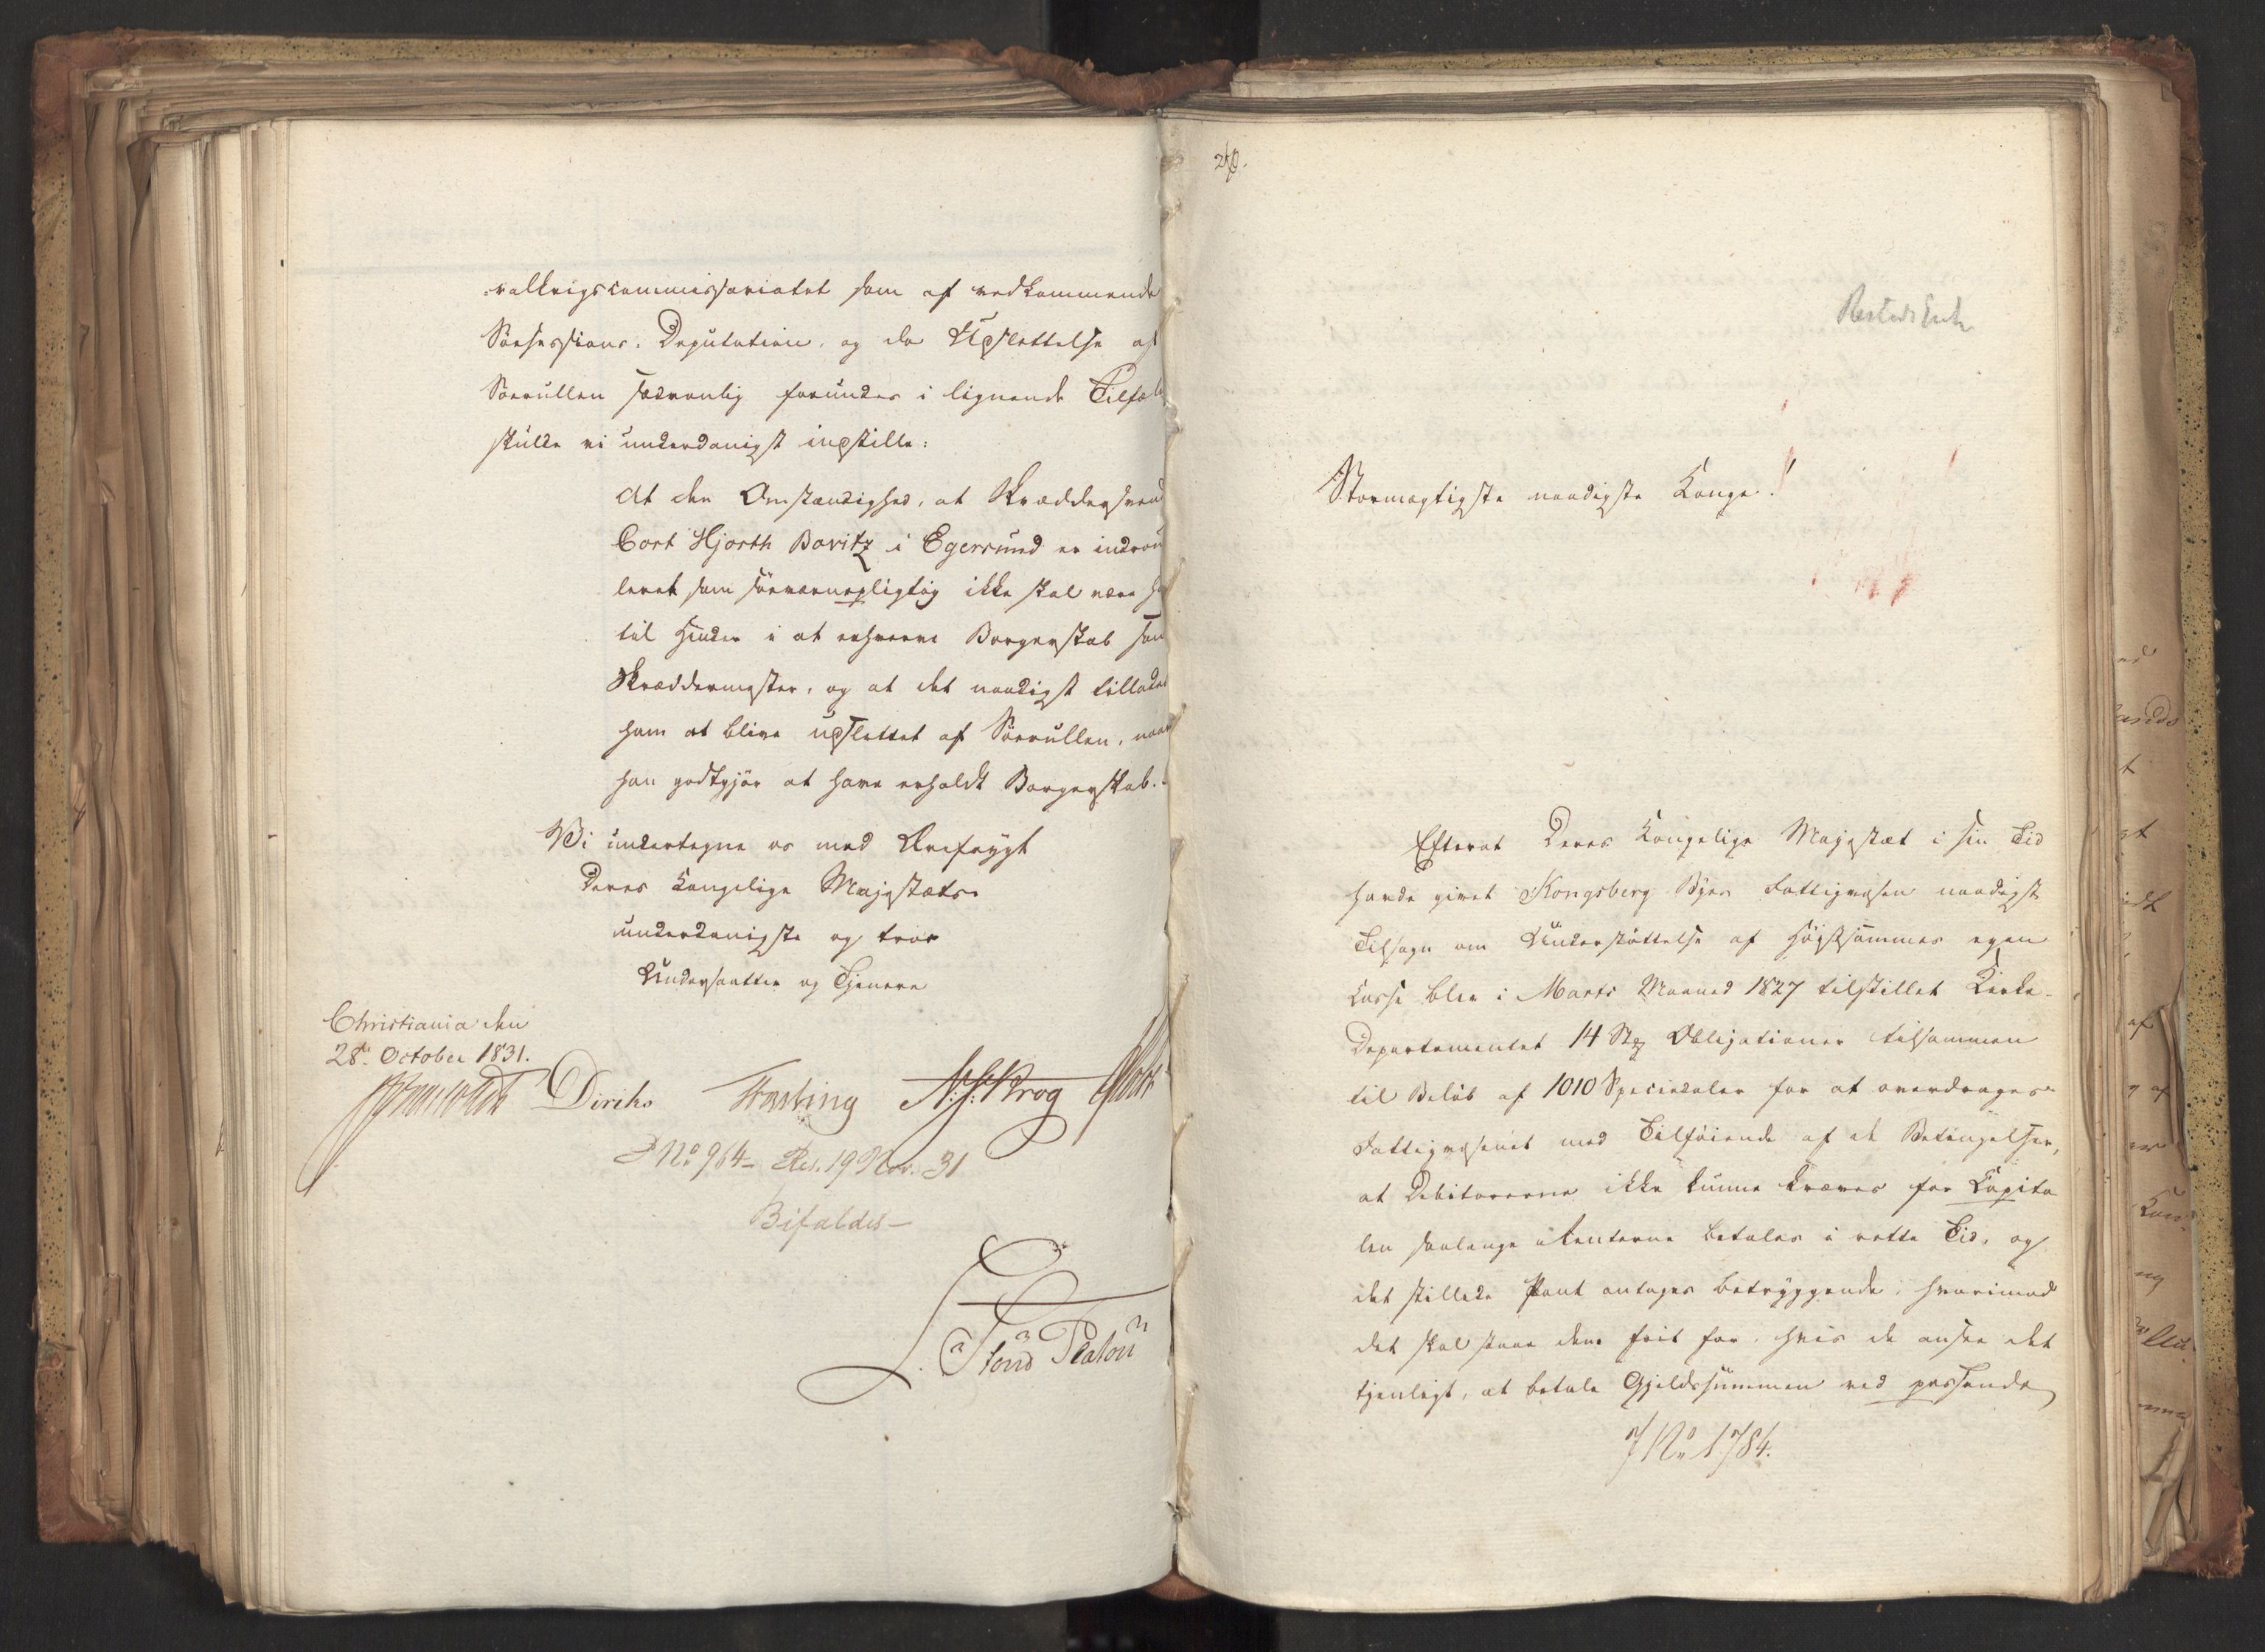 valkrigscommissariatet som af vedkommende
Söesessions-Deputation, og da Udslettelse af
Söerullen sædvanlig forundes i lignende Tilfælde
skulle vi underdanigst indstille:
At den Omstændighed, at Skræddersvend
Cort Hjorth Bovitz i Egersund er indroul
leret som söeværnepligtig ikke skal være ham
til Hinder i at erhverve Borgerskab som
Skræddermester, og at det naadigst tillades
ham at blive udslettet af Söerullen, naar
han godtgjör at have erholdt Borgerskab.
Vi undertegne os med Ærefrygt
Deres Kongelige Majestæts
underdanigste og troe
Undersaatter og Tjenere
Christiania den
28de October 1831.
Diriks Fasting N. J. Krog
No 964 - Res. 19 Nov. 31
Bifaldes -
Stormægtigste naadigste Konge!
Efterat Deres Kongelige Majestæt i sin Tid
havde givet Kongsberg Byes Fattigvæsen naadigst
Tilsagn om Understöttelse af Höistsammes egen
Casse blev i Marts Maaned 1827 tilstillet Kirke-
Departementet 14 Stk Obligationer tilsammen
til Belöb af 1010 Speciedaler for at overdrages
Fattigvæsenet med Tilföiende af de Betingelser,
at Debitorerne ikke kunne kræves for Capita
len saalænge Renterne betales i rette Tid, og
det stillede Pant antages betryggende, hvorimod
det skal staae dem frit for, hvis de ansee det
tjenligt, at betale Gjeldssummen ved passende
No 1784.